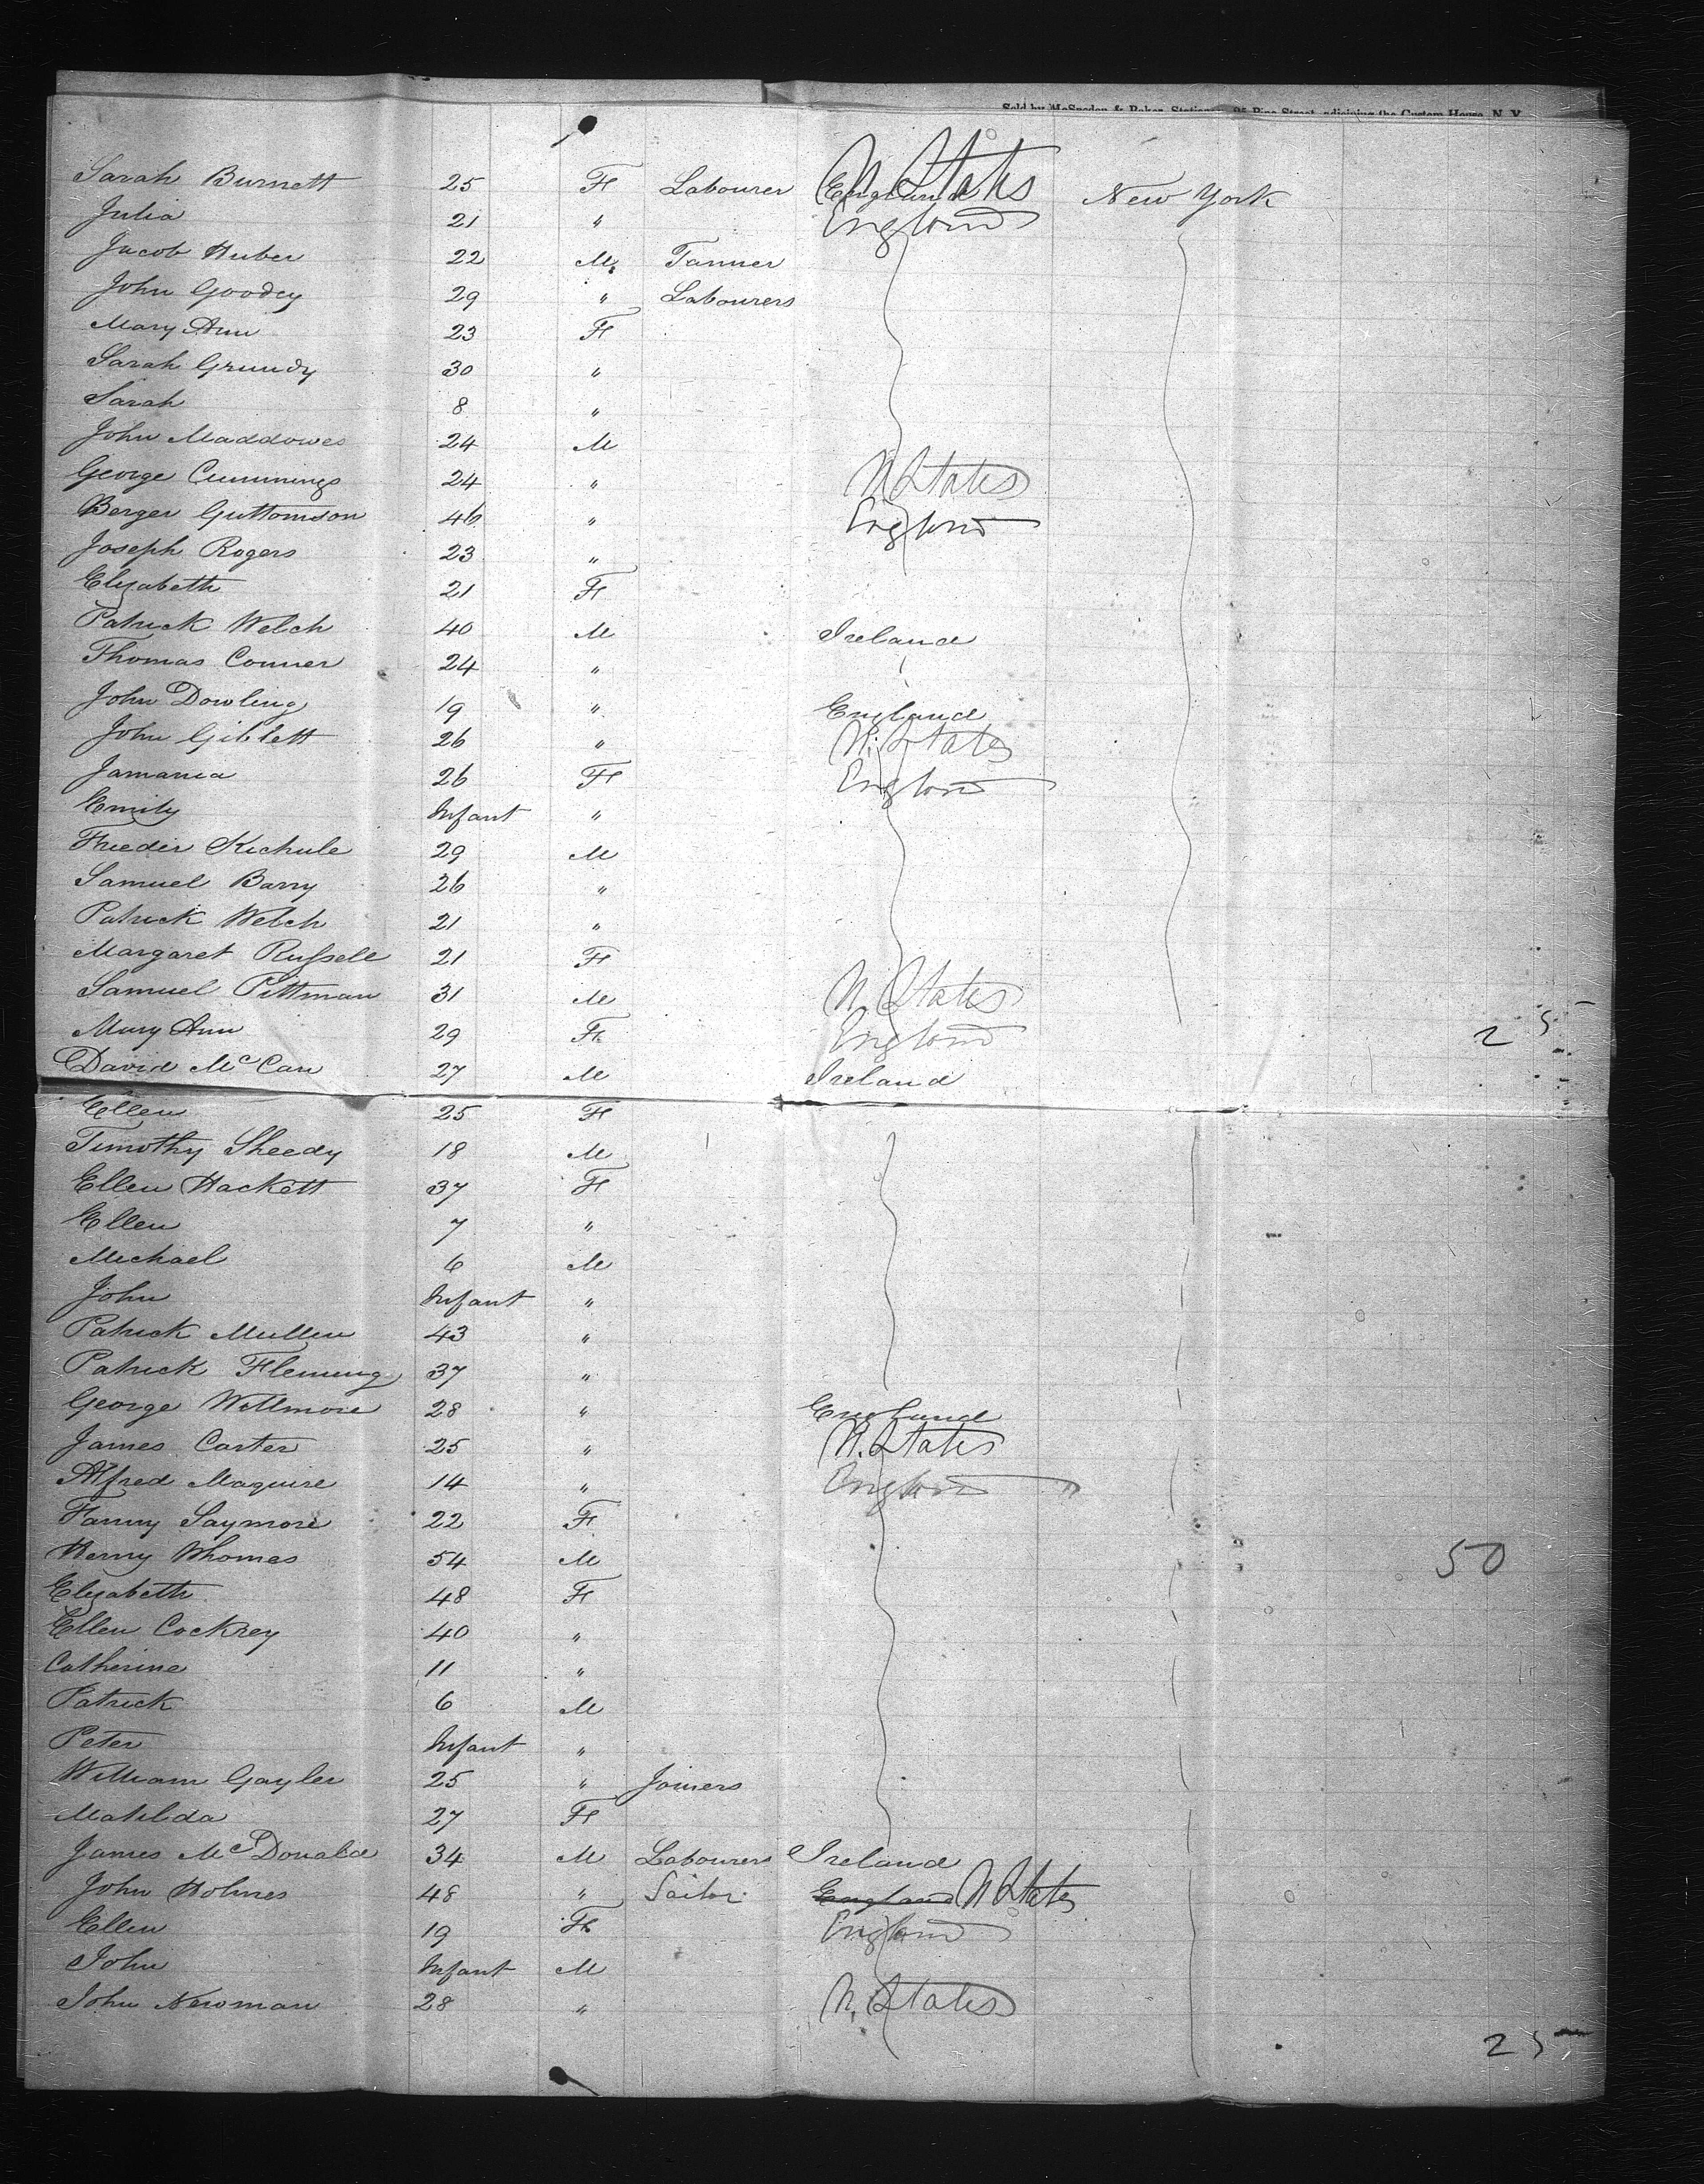 Sold by McSpedon & Baker, Stationers, 25 Pine Street, adjoining the Custom House, N. Y.
Sarah Burnett 25 F Labourer England U States New York
Julia 21 " England
Jacob Huber 22 M Tanner
John Goodey 29 " Labourers
Mary Ann 23 F
Sarah Grundy 30 "
Sarah 8 "
John Maddowes 24 M
George Cummings 24 " U States
Berger Guttomson 46 " England
Joseph Rogers 23 "
Elizabeth 21 F
Patrick Welch 40 M Ireland
Thomas Conner 24 "
John Dowling 19 " England
John Giblett 26 " U. States
Jamania 26 F England
Emily Infant "
Frieder Kichule 29 M
Samuel Barry 26 "
Patrick Welch 21 "
Margaret Russell 21 F
Samuel Pittman 31 M U. States
Mary Ann 29 F England 25
David McCan 27 M Ireland
Ellen 25 F
Timothy Sheedy 18 M
Ellen Hackett 37 F
Ellen 7 "
Michael 6 M
John Infant "
Patrick Mullen 43 "
Patrick Fleming 37 "
George Willmore 28 " England
James Carter 25 " U. States
Alfred Maguire 14 " England
Fanny Saymore 22 F
Henry Whomes 54 M 50
Elizabeth 48 F
Ellen Cockrey 40 "
Catherine 11 "
Patrick 6 M
Peter Infant "
William Gayler 25 " Joiners
Matilda 27 F
James McDonald 34 M Labourers Ireland
John Holmes 48 " Sailor England U States
Ellen 19 F England
John Infant M
John Newman 28 " U. States
25